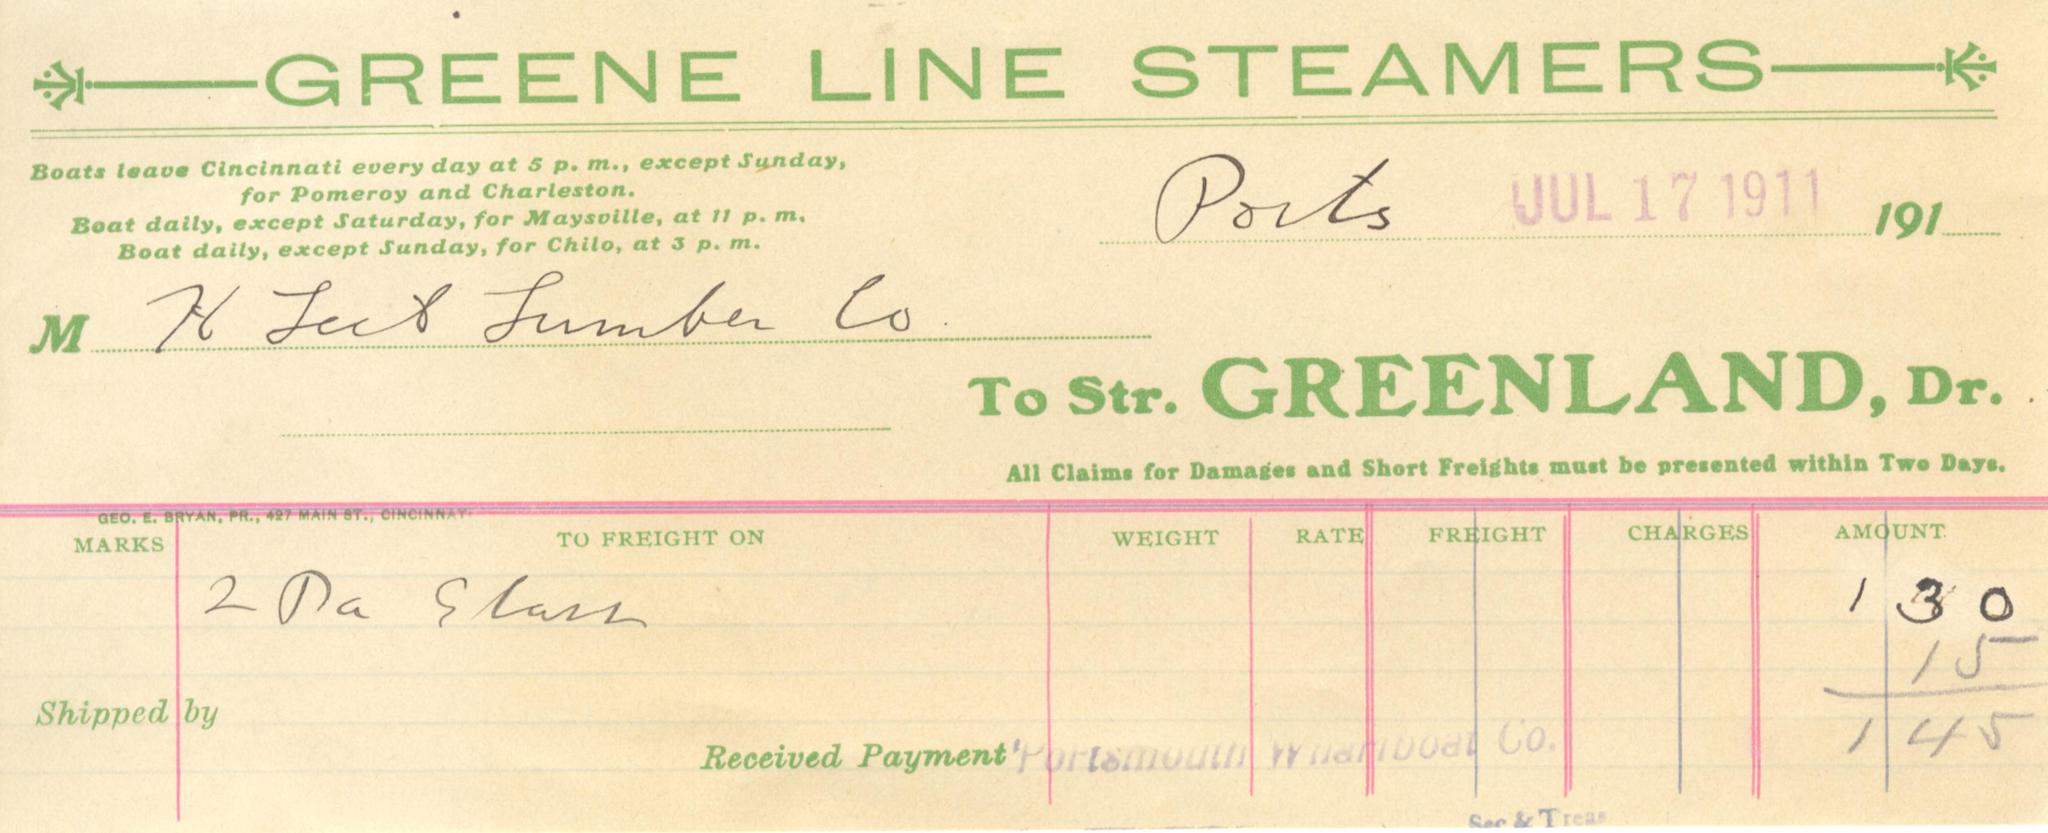 GREENE LINE STEAMERS
Boats leave Cincinnati every day at 5 p. m., except Sunday,
for Pomeroy and Charleston.
Boat daily, except Saturday, for Maysville, at 11 p. m.
Boat daily, except Sunday, for Chilo, at 3 p. m.
Ports JUL 17 1911 191
M H Leet Lumber Co
To Str. GREENLAND, Dr.
All Claims for Damages and Short Freights must be presented within Two Days.
GEO. E. BRYAN, PR., 427 MAIN ST., CINCINNATI
MARKS TO FREIGHT ON WEIGHT RATE FREIGHT CHARGES AMOUNT
2 Glass 1 30
15
1 45
Shipped by
Received Payment Portsmouth Wharfboat Co.
Sec & Treas